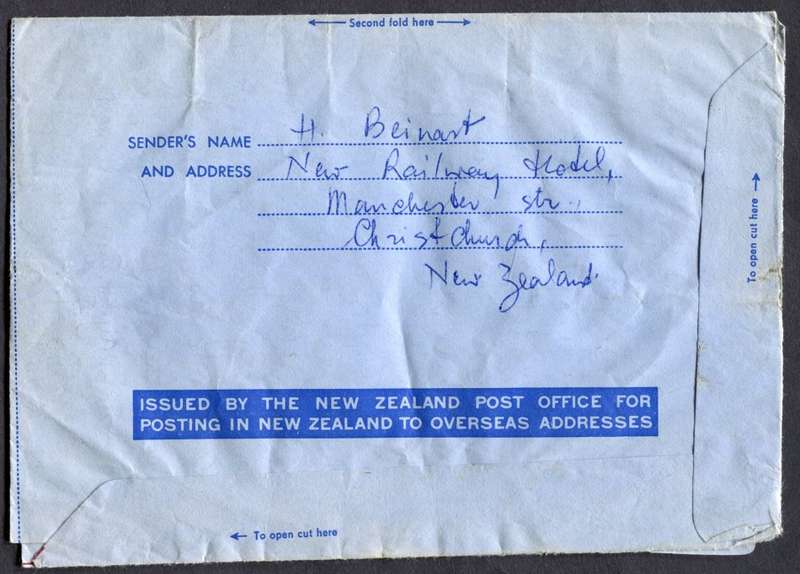 Second fold here
SENDER'S NAME H. Beinart
AND ADDRESS New Railway Hotel,
Manchester str.,
Christchurch,
New Zealand.
To open cut here
ISSUED BY THE NEW ZEALAND POST OFFICE FOR
POSTING IN NEW ZEALAND TO OVERSEAS ADDRESSES
To open cut here